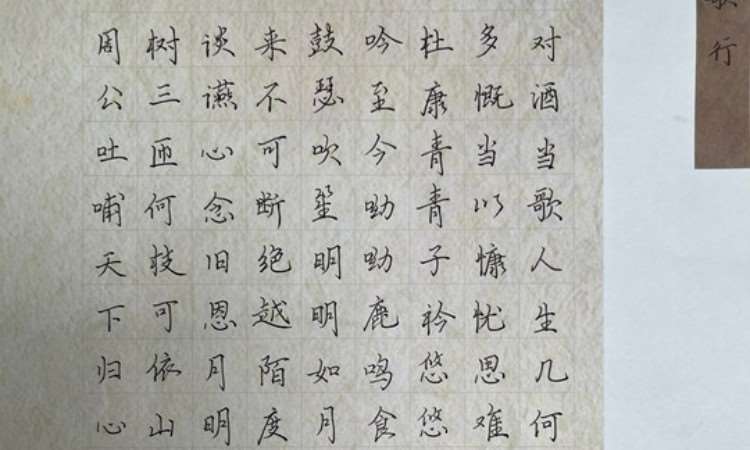 歌行
对酒当歌人生几何
多慨当以慷忧思难
杜康青青子衿悠悠
吟至今呦呦鹿鸣食
鼓瑟吹笙明明如月
来不可断绝越陌度
谈䜩心念旧恩月明
树三匝何枝可依山
周公吐哺天下归心